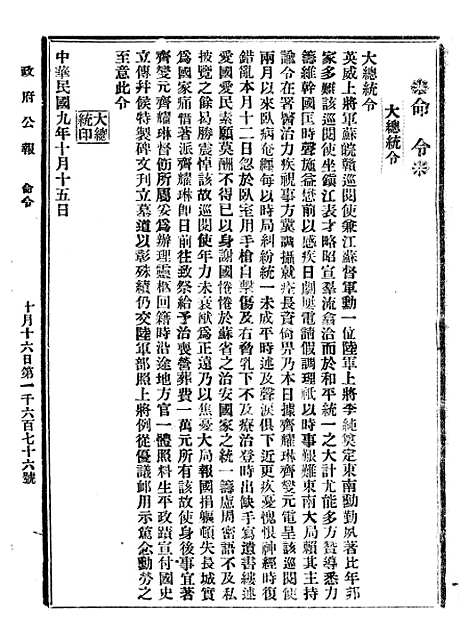 命令
大總統令
大總統令
英威上將軍蘇皖贛巡閱使兼江蘇督軍勳一位陸軍上將李純奠定東南勳勤夙著比年邦
家多難該巡閱使坐鎮江表才略昭宣羣流翕洽而於和平統一之大計尤能多方贊導悉力
籌維幹國匡時聲施益懋前以感疾日劇屢電請假調理祇以時事艱難東南大局賴其主持
諭令在署醫治力疾視事方冀調攝就痊長資倚畀乃本日據齊耀琳齊燮元電呈該巡閱使
兩月以來臥病奄纏每以時局糾紛統一未成平時述及聲淚俱下近更疾憂愧恨神經時復
錯亂本月十二日忽於臥室用手槍自擊傷及右脅乳下不及療治登時出缺手寫遺書縷述
愛國愛民素願莫酬不得已以身謝國惓惓於蘇省之治安國家之統一籌慮周密語不及私
披覽之餘曷勝震悼該故巡閱使年力未衰猷為正遠乃以焦憂大局報國捐軀頓失長城實
為國家痛惜著派齊耀琳即日前往致祭給予治喪營葬費一萬元所有該故使身後事宜著
齊燮元齊耀琳督飭所屬妥為辦理靈柩回籍時沿途地方官一體照料生平政蹟宣付國史
立傳幷候特製碑文刊立墓道以彰殊績仍交陸軍部照上將例從優議卹用示篤念勳勞之
至意此令
大總統印
中華民國九年十月十五日
政府公報
命令
十月十六日第一千六百七十六號